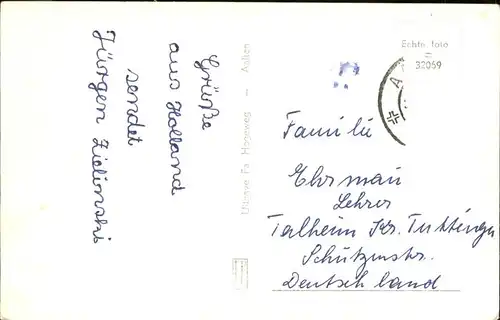 Grüße
aus Holland
sendet
Jürgen Zielinski
Uitgave Fa. Hogeweg — Aalten
Echte foto
32059
A
Familie
Ehrmann
Lehrer
Talheim Kr. Tuttlingen
Schützenstr.
Deutschland